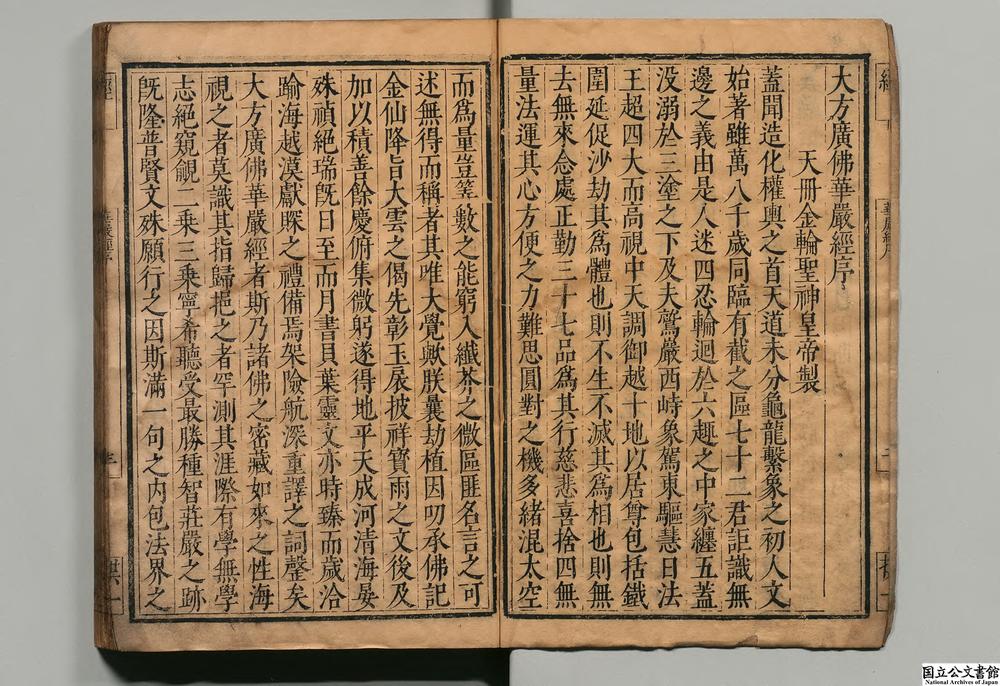 大方廣佛華嚴經序
天冊金輪聖神皇帝製
蓋聞造化權輿之首天道未分龜龍繫象之初人文
始著雖萬八千歲同臨有截之區七十二君詎識無
邊之義由是人迷四忍輪迴於六趣之中家纏五蓋
沒溺於三塗之下及夫鷲嚴西峙象駕東驅慧日法
王超四大而高視中天調御越十地以居尊包括鐵
圍延促沙劫其為體也則不生不滅其為相也則無
去無來念處正勤三十七品為其行慈悲喜捨四無
量法運其心方便之力難思圓對之機多緒混太空
而為量豈筭數之能窮入纖芥之微區匪名言之可
述無得而稱者其唯大覺歟朕曩劫植因叨承佛記
金仙降旨大雲之偈先彰玉扆披祥寶雨之文後及
加以積善餘慶俯集微躬遂得地平天成河清海晏
殊禎絕瑞既日至而月書貝葉靈文亦時臻而歲洽
踰海越漠獻賝之禮備焉架險航深重譯之詞罄矣
大方廣佛華嚴經者斯乃諸佛之密藏如來之性海
視之者莫識其指歸挹之者罕測其涯際有學無學
志絕窺覦二乘三乘寧希聽受最勝種智莊嚴之跡
既隆普賢文殊願行之因斯滿一句之內包法界之
国立公文書館
National Archives of Japan